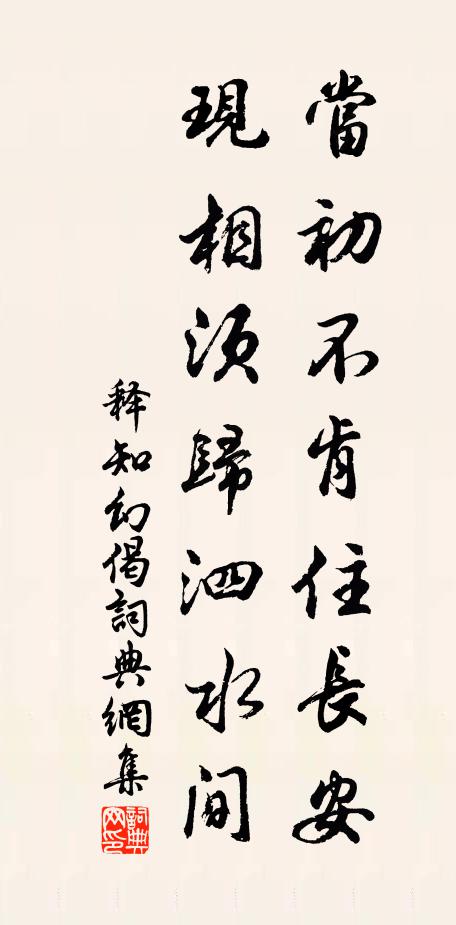 當初不肯住長安
現相須歸泗水间
释知幻偈詞典網集
詞典
网印